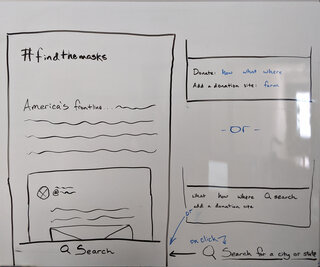 #findthemasks
America's frontline...
Search
Donate: how what where
Add a donation site: form
- or -
what how where Search
add a donation site
on click
Search for a city or state